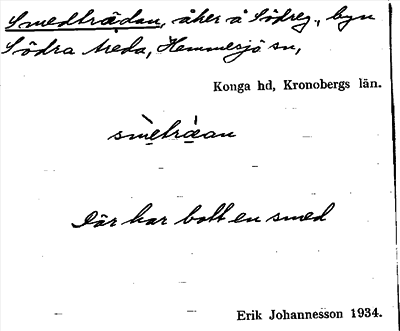 Smedträdan, åker å Södreg., byn
Södra Areda, Hemmesjö sn,
Konga hd, Kronobergs län.
smètràan
Där har bott en smed
Erik Johannesson 1934.